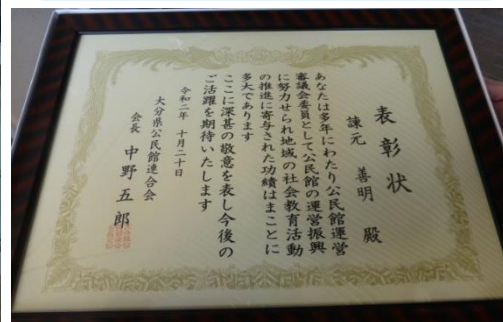 表彰状
諫元 善明 殿
あなたは多年にわたり公民館運営
審議会委員として公民館の運営振興
に努力せられ地域の社会教育活動
の推進に寄与された功績はまことに
多大であります
ここに深甚の敬意を表し今後の
ご活躍を期待いたします
令和二年 十月二十日
大分県公民館連合会
会長 中野五郎